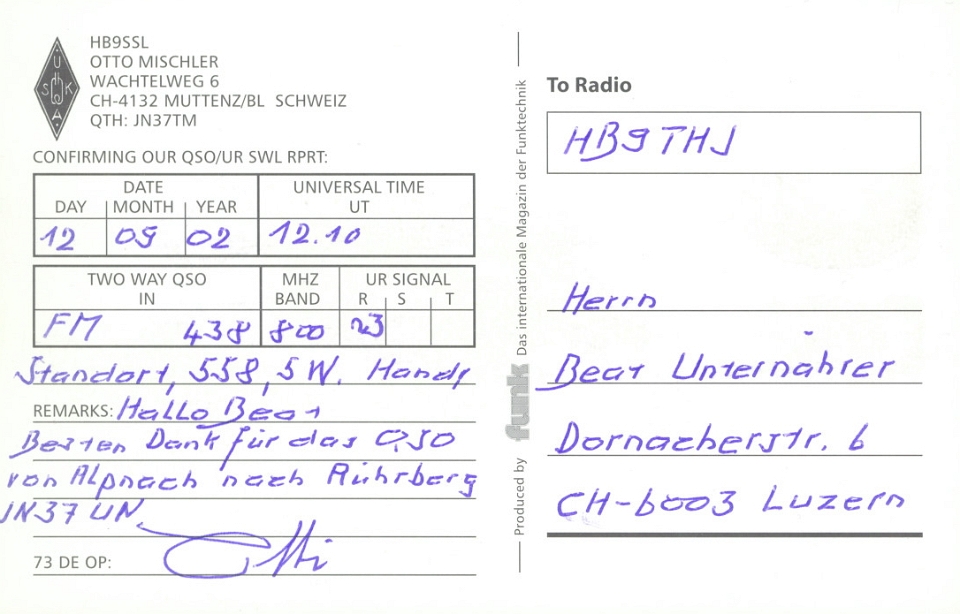 HB9SSL
OTTO MISCHLER
WACHTELWEG 6
CH-4132 MUTTENZ/BL SCHWEIZ
QTH: JN37TM
USKA
CONFIRMING OUR QSO/UR SWL RPRT:
DATE UNIVERSAL TIME
DAY MONTH YEAR UT
12 09 02 12.10
TWO WAY QSO MHZ UR SIGNAL
IN BAND R S T
FM 438 800
Standort, 558, 5 W. Handy
REMARKS: Hallo Beat
Besten Dank für das QSO
von Alpnach nach Rührberg
JN37UN
73 DE OP: Otti
Produced by funk Das internationale Magazin der Funktechnik
To Radio
HB9THJ
Herrn
Beat Unternährer
Dornacherstr. 6
CH-6003 Luzern